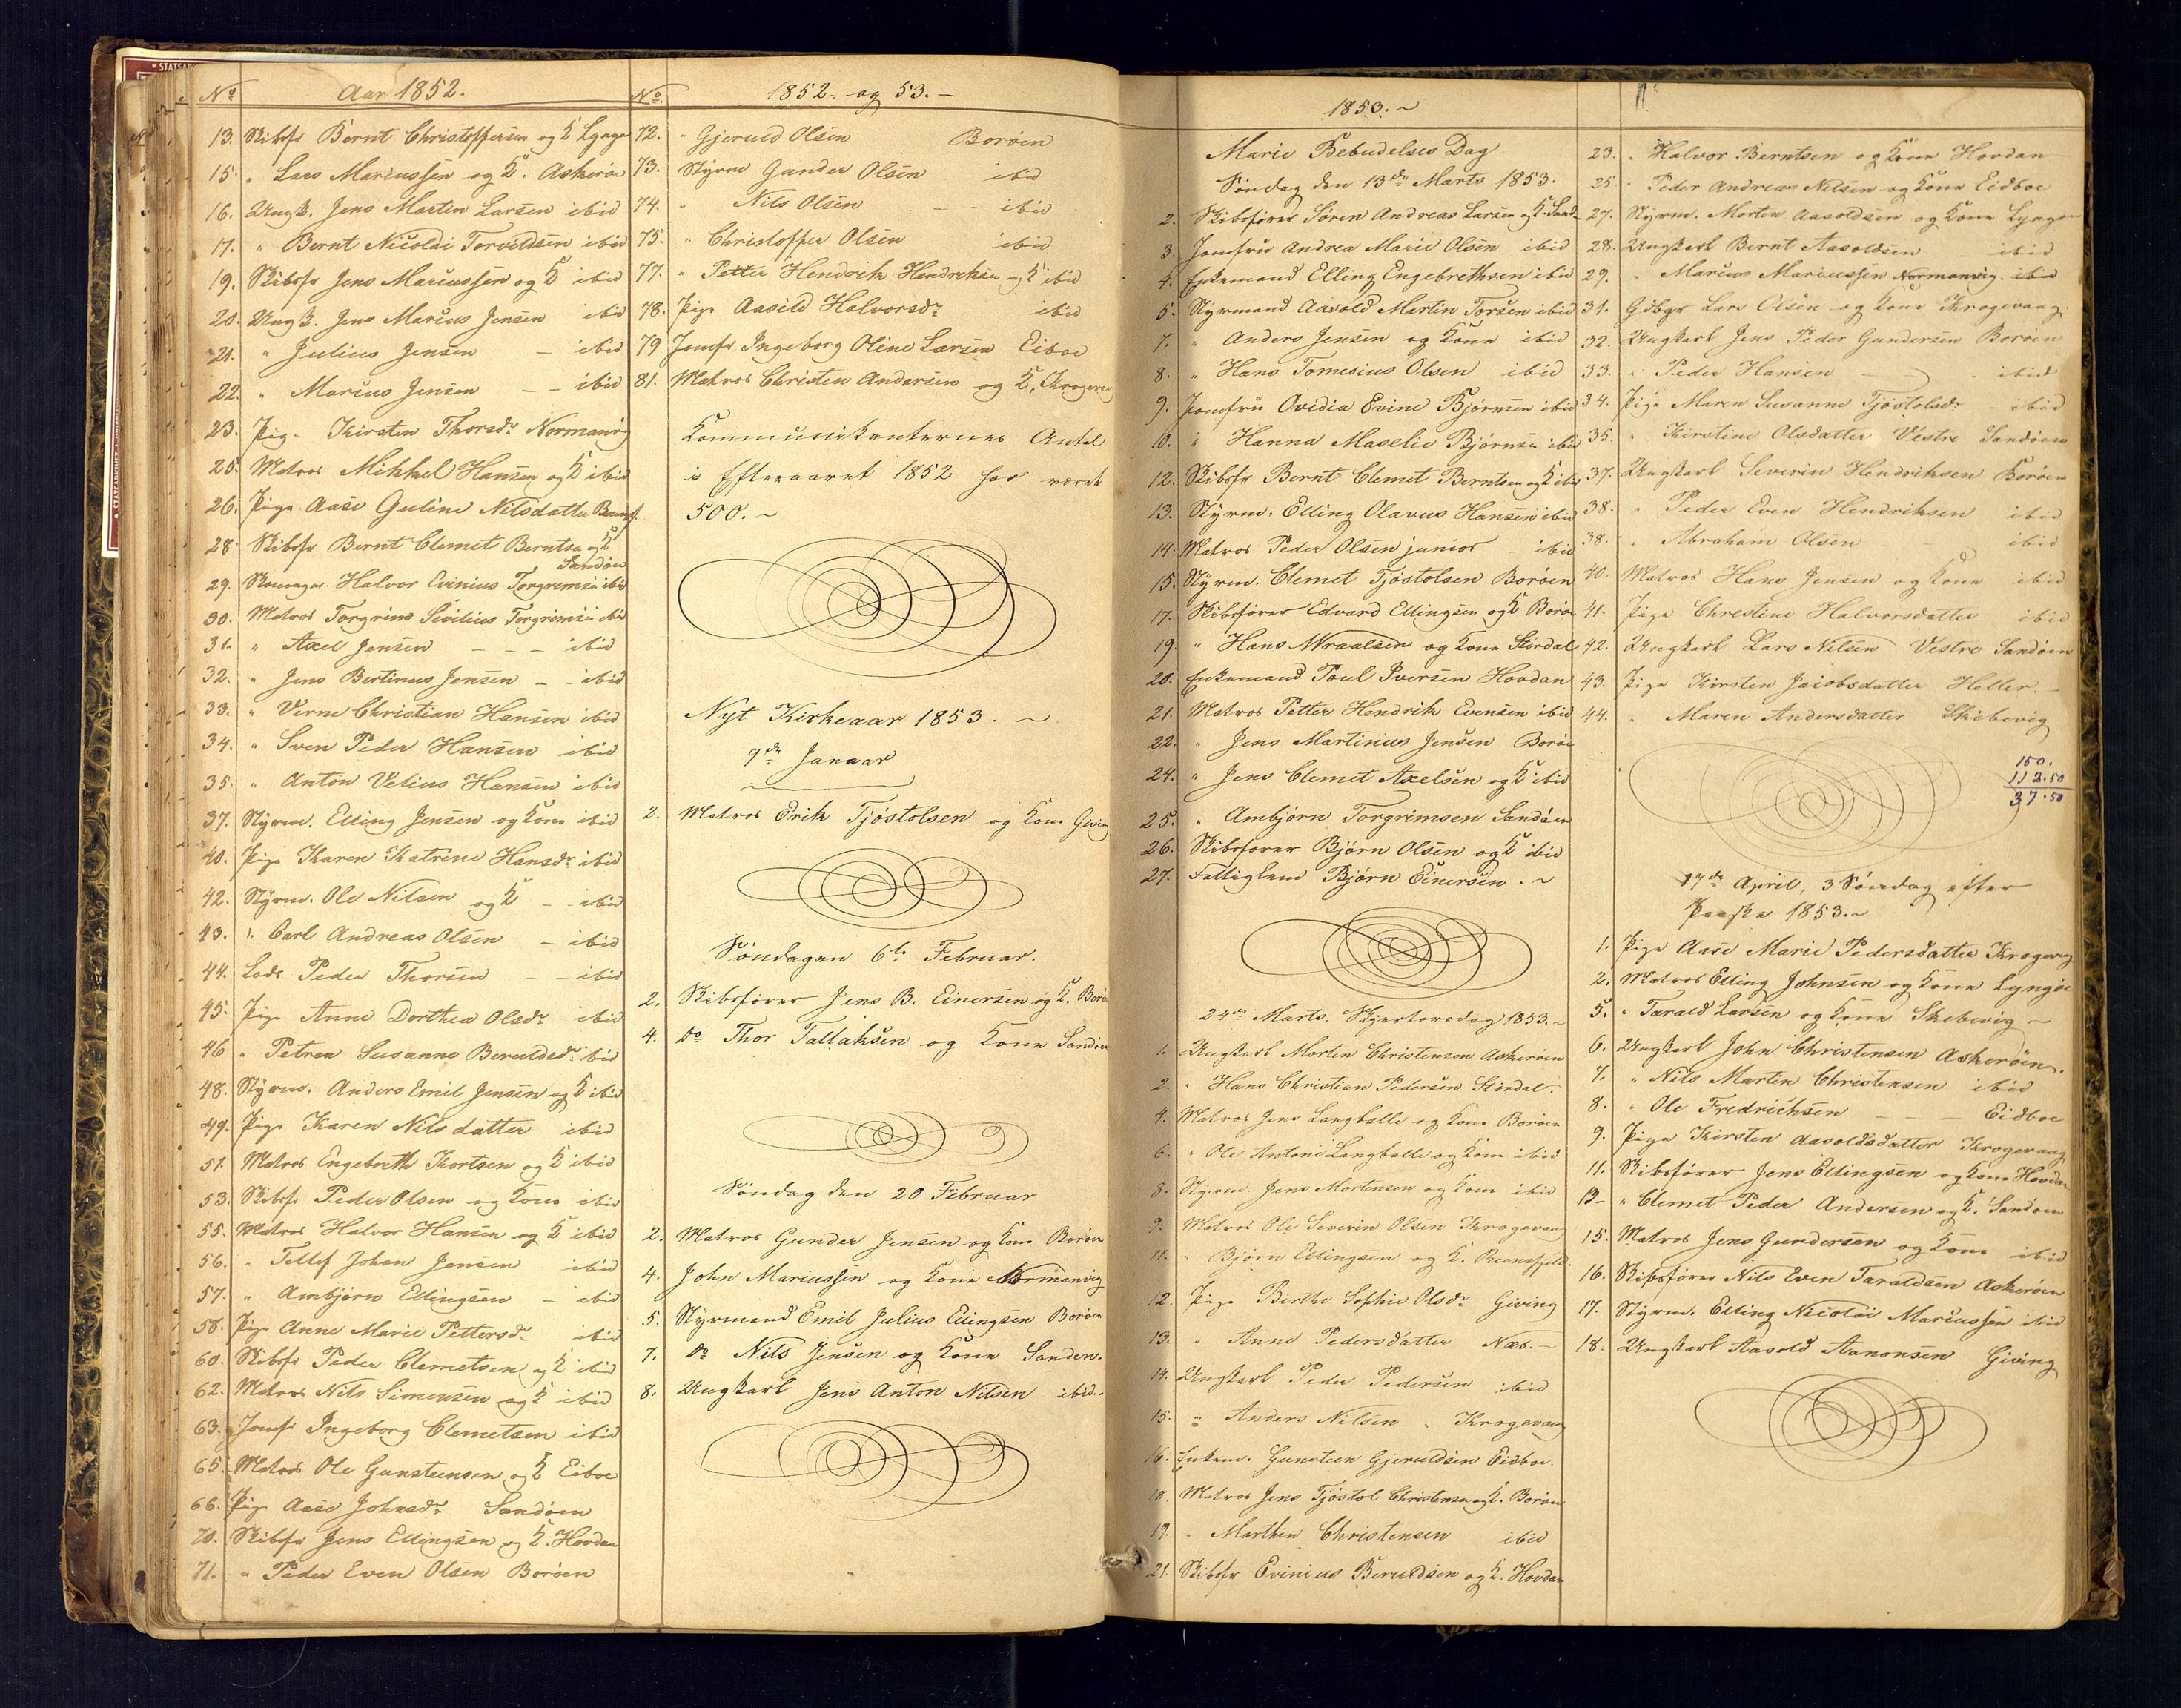 No Aar 1852.
13. Skibsfr Bernt Christoffersen og K Lyngø
15. " Lars Mariussen og K. Askerøe
16. Ungk. Jens Morten Larsen ibid
17. " Bernt Nicolai Torvildsen ibid
19. Skibsfr Jens Mariussen og K ibid
20. Ungk. Jens Marius Jensen ibid
21. " Julius Jensen - ibid
22. " Marius Jensen - - ibid
23. Pig. Kirsten Thorsdr Normanvig
25. Matros Mikkel Hansen og K ibid
26. Pige Aase Guline Nilsdatter
28. Skibsfr Bernt Clemet Berntsen og K
Sandøen
29. Halvor Evinius Torgrimsen ibid
30. Matros Torgrim Sivilius Torgrimsen ibid
31. " Axel Jensen - - - ibid
32. " Jens Bertinus Jensen - - ibid
33. " Verne Christian Hansen ibid
34. " Sven Peder Hansen ibid
35. " Anton Velius Hansen ibid
37. Styrm. Elling Jensen og Kone ibid
40. Pige Karen Katrine Hansdr ibid
42. Styrm. Ole Nilsen og K - - ibid
43. " Carl Andreas Olsen - ibid
44. Lods Peder Thorsen - - ibid
45. Pige Anne Dorthea Olsdr ibid
46 " Petrea Susanne Beruldsdr ibid
48. Styrm. Anders Emil Jensen og K ibid
49. Pige Karen Nilsdatter ibid
51. Matros Engebreth Kortsen og K ibid
53. Skibsfr Peder Olsen og Kone ibid
55. Matros Halvor Hansen og K ibid
56. " Tellef Johan Jensen ibid
57. " Ambjørn Ellingsen - ibid
58. Pige Anne Marie Pettersdr ibid
60. Skibsfr Peder Clemetsen og K ibid
62. Matros Nils Simensen og K ibid
63. Jomfr Ingeborg Clemetsen ibid
65. Matros Ole Gunsteensen og K Eiboe
66. Pige Aase Johnsdr Sandøen
70. Skibsfr Jens Ellingsen og K. Hovdan
71. " Peder Even Olsen Borøen
No 1852. og 53. -
72. " Gjeruld Olsen Borøen
73. Styrm Gunder Olsen ibid
74. " Nils Olsen - - ibid
75. " Christoffer Olsen ibid
77. " Petter Hendrik Hendriksen og K ibid
78. Pige Aasild Halvorsdr ibid
79 Jomfr. Ingeborg Oline Larsen Eiboe
81. Matros Christen Andersen og K, Krogevaag
Kommunikanternes Antal
i Efteraaret 1852 har været
500. ~
Nyt Kirkeaar 1853. ~
9de Januar
2. Matros Erik Tjøstolsen og Kone Giving
Søndagen 6te Februar.
2. Skibsfører Jens B. Einersen og K. Borøen
4. Do Thor Tallaksen og Kone Sandøen
Søndag den 20 Februar
2. Matros Gunder Jensen og Kone Borøen
4. John Mariussen og Kone Normanvig
5. Styrmand Emil Julius Ellingsen Borøen
7. Do Nils Jensen og Kone Sandøen.
8. Ungkarl Jens Anton Nilsen ibid.-
1853. ~
Marie Bebudelses Dag
Søndag den 13de Marts 1853.
2. Skibsfører Søren Andreas Larsen og K. Sandø
3. Jomfru Andrea Marie Olsen ibid
4. Enkemand Elling Engebrethsen ibid
5. Styrmand Aavold Martin Torsen ibid
7. " Anders Jensen og Kone ibid
8. " Hans Tomesius Olsen ibid
9. Jomfru Ovidia Evine Bjørnsen ibid
10. " Hanna Maselie Bjørnsen ibid
12. Skibsfr Bernt Clemet Berntsen og K ibid
13. Styrm. Elling Olavus Hansen ibid
14. Matros Peder Olsen junior - ibid
15. Styrm. Clemet Tjøstolsen Borøen
17. Skibsfører Edvard Ellingsen og K Borøe
19. " Hans Wraalsen og Kone Stordal
20. Enkemand Poul Iversen Hovdan
21. Matros Petter Hendrik Evensen ibid
22. " Jens Martinius Jensen Borøe
24. " Jens Clemet Axelsen og K ibid
25. " Ambjørn Torgrimsen Sandøen
26. Skibsfører Bjørn Olsen og K ibid
27. Fattiglem Bjørn Einersen. ~
24de Marts. Skjertorsdag 1853. ~
1. Ungkarl Morten Christensen Askerøen
2. " Hans Christian Pedersen Stordal.
4. Matros Jens Langballe og Kone Borøen
6. " Ole Antoni Langballe og Kone ibid
8. Styrm. Jens Mortensen og Kone ibid
9. Matros Ole Severin Olsen Krogevaag
11. " Bjørn Ellingsen og K.
12. Pige Birthe Sophie Olsdr Giving
13. " Anne Pedersdatter Næs. -
14. Ungkarl Peder Pedersen ibid
15. " Anders Nilsen . Krogevaag
16. Enkem. Gunsteen Gjeruldsen Eidboe.
18. Matros Jens Tjøstol Christensen og K. Borøen
19. " Marthin Christensen ibid
21. Skibsfr Evinius Beruldsen og K. Hovdan
23. " Halvor Berntsen og Kone Hovdan
25. " Peder Andreas Nilsen og Kone Eidboe
27. Styrm. Morten Aasoldsen og Kone Lyngøe
28. Ungkarl Bernt Aasoldsen - ibid
29. " Marius Mariussen Normanvig. ibid
31. Gdbgr Lars Olsen og Kone Krogevaag.
32. Ungkarl Jens Peder Gundersen Borøen
33. " Peder Hansen - ibid
34. Pige Maren Susanne Tjøstolsdr - ibid
35. " Kirstine Olsdatter Vestre Sandøen
37. Ungkarl Severin Hendriksen Borøen
38. " Peder Even Hendriksen ibid
38. " Abraham Olsen ibid
40. Matros Hans Jensen og Kone ibid
41. Pige Christine Halvorsdatter ibid
42. Ungkarl Lars Nilsen Vestre Sandøen
43. Pige Kirsten Jacobsdatter Heller. -
44. " Maren Andersdatter Skibevig
150.
112.50
37.50
17de April, 3 Søndag efter
Paaske 1853. ~
1. Pige Aase Marie Pedersdatter Krogevaag
2. Matros Elling Johnsen og Kone Lyngøe
5. " Tarald Larsen og Kone Skibevig -
6. Ungkarl John Christensen Askerøen.
7. " Nils Martin Christensen ibid
8. " Ole Fredrichsen - - Eidboe
9. Pige Kirsten Aasoldsdatter Krogevaag
11. Skibsfører Jens Ellingsen og Kone Hovdan
13- " Clemet Peder Andersen og K. Sandøen
15. Matros Jens Gundersen og Kone ibid
16. Skibsfører Nils Even Taraldsen Askerøen
17. Styrm. Elling Nicolai Mariussen ibid
18. Ungkarl Aasold Aanonsen Giving